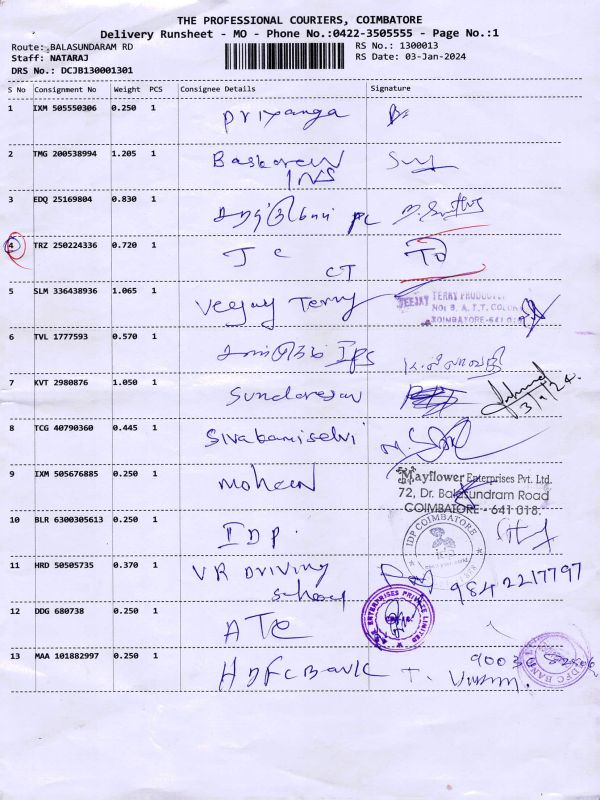 THE PROFESSIONAL COURIERS, COIMBATORE
Delivery Runsheet - MO - Phone No.:0422-3505555 - Page No.:1
Route: BALASUNDARAM RD RS No.: 1300013
Staff: NATARAJ RS Date: 03-Jan-2024
DRS No.: DCJB130001301
S No Consignment No Weight PCS Consignee Details Signature
1 IXM 505550306 0.250 1 Priyanga
2 TMG 200538994 1.205 1 Baskaran
INS
3 EDQ 25169804 0.830 1 PC
4 TRZ 250224336 0.720 1 J C
CT
5 SLM 336438936 1.065 1 Veejay Terry VEEJAY TERRY PRODUCTS
No: 9, A. T. T. COLONY
COIMBATORE-641 018
6 TVL 1777593 0.570 1 IPS
7 KVT 2980876 1.050 1 Sundaresan 3/1/24.
8 TCG 40790360 0.445 1 Sivabamiselvi
9 IXM 505676885 0.250 1 Moheen
Mayflower Enterprises Pvt. Ltd.
72, Dr. Balasundram Road
COIMBATORE - 641 018.
10 BLR 6300305613 0.250 1 IDP. IDP COIMBATORE
11 HRD 50505735 0.370 1 VR Driving
School 9842217797
12 DDG 680738 0.250 1 ATC ENTERPRISES PRIVATE LIMITED
13 MAA 101882997 0.250 1 HDFC Bank T.